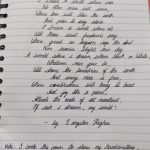 I dream a world where man
No other man will scorn,
Where love will bless the earth
And peace its paths adorn.
I dream a world where all
Will know sweet freedom's way,
Where greed no longer saps the soul
Nor avarice blights our day.
A world I dream where black or white,
Whatever race you be,
Will share the bounties of the earth
And every man is free,
Where wretchedness will hang its head
And joy, like a pearl,
Attends the needs of all mankind,
Of such I dream, my world!
- by Langston Hughes
I wrote the poem to show my handwriting